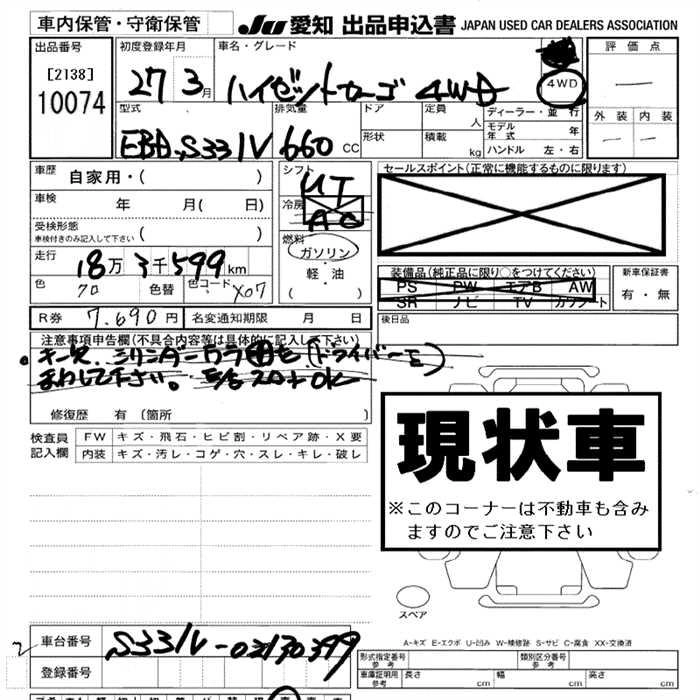 車内保管・守衛保管
JU 愛知 出品申込書 JAPAN USED CAR DEALERS ASSOCIATION
出品番号
[2138]
10074
初度登録年月
27 3月
車名・グレード
ハイゼットカーゴ 4WD
4WD
評価点
外装 内装
型式
EBD-S331V
排気量
660 CC
ドア
形状
定員 人
積載 kg
ディーラー・並行
モデル年式 年
ハンドル 左・右
車歴
自家用・( )
車検 年 月( 日)
受検形態
車検付きのみ記入して下さい ( )
走行
18万 3千599km
色 クロ 色替 色コード X07
シフト
MT
冷房
AC
燃料
ガソリン
・
軽・油
( )
セールスポイント(正常に機能するものに限ります)
装備品(純正品に限り○をつけてください)
PS PW エアB AW
SR ナビ TV カワシート
新車保証書
有・無
R券 7.690円 名変通知期限 月 日
後日品
注意事項申告欄(不具合内容等は具体的に記入して下さい)
修復歴 有(箇所 )
検査員記入欄
FW キズ・飛石・ヒビ割・リペア跡・X要
内装 キズ・汚レ・コゲ・穴・スレ・キレ・破レ
現状車
※このコーナーは不動車も含み
ますのでご注意下さい
スペア
A-キズ E-エクボ U-凹み W-補修跡 S-サビ C-腐食 XX-交換済
2
車台番号 S331V-02130399
登録番号
形式指定番号 参考
類別区分番号 参考
車庫証明用 参考 長さ cm 幅 cm 高さ cm